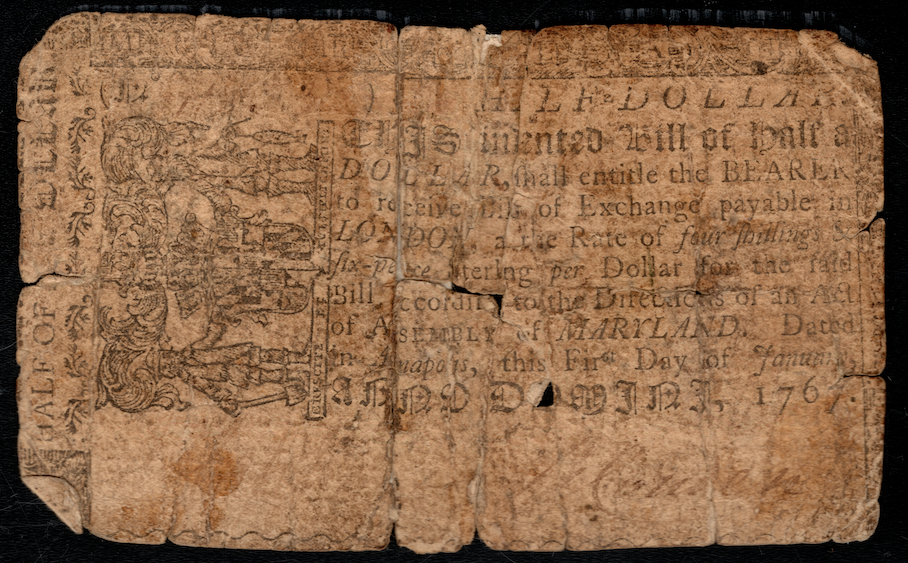 HALF-DOLLAR.
THIS indented Bill of Half a
DOLLAR, ſhall entitle the BEARER
to receive Bills of Exchange payable in
LONDON, at the Rate of four ſhillings &
ſix-pence ſterling per Dollar for the ſaid
Bill according to the Directions of an Act
of ASSEMBLY of MARYLAND. Dated
in Annapolis, this Firſt Day of January,
ANNO DOMINI, 1767.
HALF OF DOLLAR
CRESCITE